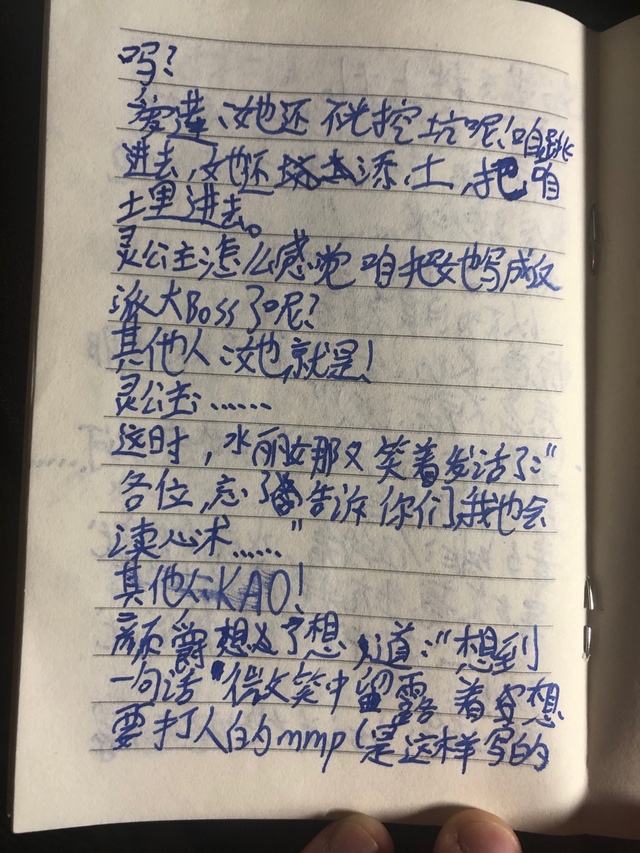 吗?
她还不光挖坑呢!咱跳
进去,她还填土,把咱
土里进去。
灵公主:怎么感觉咱把她写成反
派大Boss了呢?
其他人:她就是!
灵公主:……
这时,水丽女那又笑着发话了:"
各位,忘了告诉你们,我也会
读心术……"
其他人:KAO!
颜爵想了想,道:"想到
一句话"微笑中留露着
要打人的mmp(是这样写的